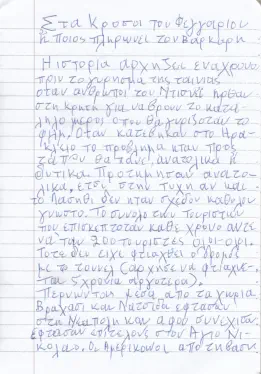 Στα Κροσοι του Φεγγαριου
ή Ποιος πληρωνει τον Βαρκαρη
Η ιστορια αρχηζει ενα χρονο
πριν το γυρησμα της ταινιας
οταν ανθρωποι του Ντισνεϋ ηρθαν
στη κρητη για να βρουν το κατα
ληλο μερος οπου θα γυριζοταν το
φιλμ. Οταν κατεβηκαν στο Ηρα
κλειο το προβλημα ηταν προς
τα που θα πανε ανατολικα ή
δυτικα. Προτιμησαν ανατο
λικα, ετσι στην τυχη αν και
το Λασηθι δεν ηταν σχεδον καθολου
γνωστο. Το συνολο των τουριστων
που επισκεπτοταν καθε χρονο αυτε
να ταν 200 τουριστες ολοι-ολοι.
Τοτε δεν ειχε φτιαχθει ο δρομος
με το τουνελ (αρχησε να φτιαχνε
ται 5 χρονια αργοτερα).
Περνωντας μεσα απο τα χωρια
Βραχασι και Λατσιδα εφτασαν
στη Νεαπολη και αφου συνεχισαν
εφτασαν επιτελους στον Αγιο Νι
κολαο. Οι Αμερικανοι αποτηβαση